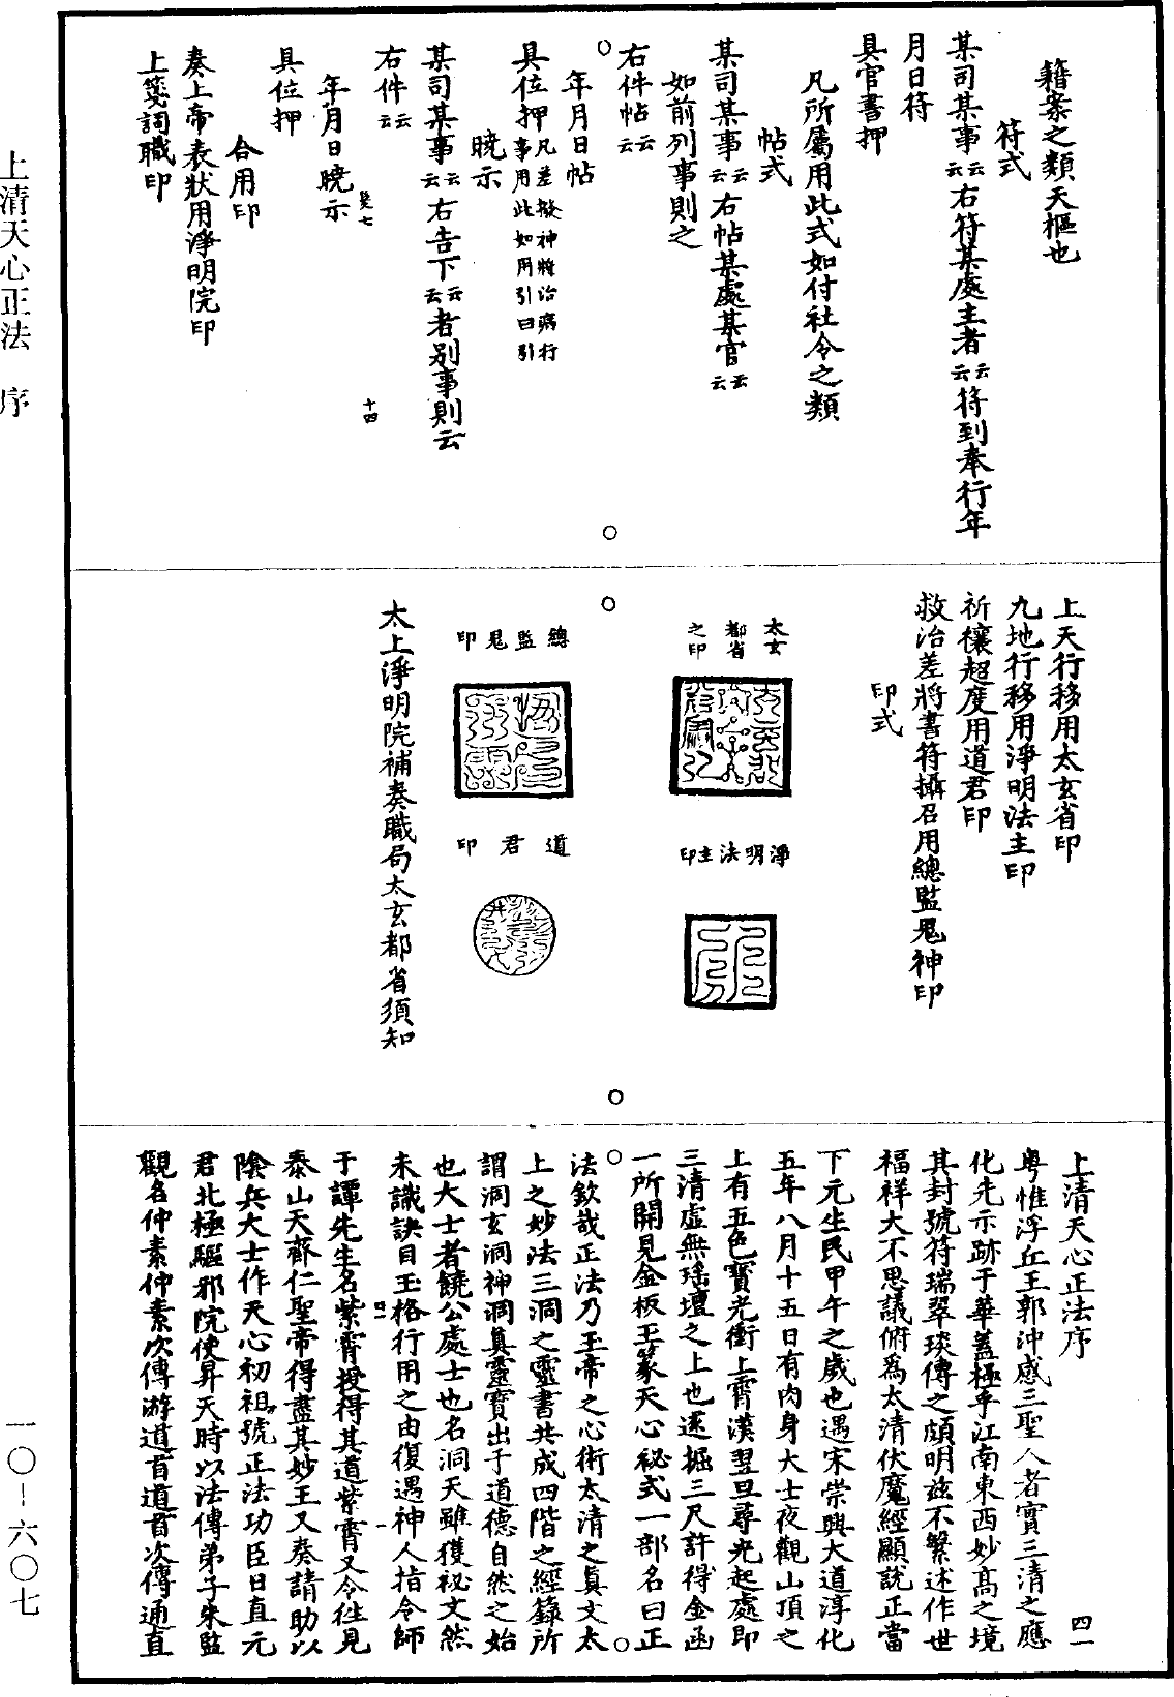 籍案之類天樞也
符式
某司某事云云右符某處主者云云符到奉行年
月日符
具官書押
凡所屬用此式如付社令之類
帖式
某司某事云云右帖某處某官云云
如前列事則之
右件帖云云
年月日帖
具位押凡差撥神將治病行事用此如用引曰引
曉示
某司某事云云右告下云云者别事則云
右件云云
年月日曉示
具位押
合用印
奏上帝表狀用淨明院印
上箋詞職印
十四
上天行移用太玄省印
九地行移用淨明法主印
祈禳超度用道君印
救治差將書符攝召用總監鬼神印
印式
太玄都省之印
淨明法主印
總監鬼印
道君印
太上淨明院補奏職局太玄都省須知
上清天心正法序
四一
粤惟浮丘王郭沖感三聖人者實三清之應
化先示跡于華蓋極乎江南東西妙高之境
其封號符瑞翠琰傳之頗明兹不繁述作世
福祥大不思議俯為太清伏魔經顯説正當
下元生民甲午之歲也遇宋崇興大道淳化
五年八月十五日有肉身大士夜觀山頂之
上有五色寶光衝上霄漢翌旦尋光起處即
三清虚無瑶壇之上也遂掘三尺許得金函
一所開見金板玉篆天心秘式一部名曰正
法欽哉正法乃玉帝之心術太清之真文太
上之妙法三洞之靈書共成四階之經籙所
謂洞玄洞神洞真靈寶出于道德自然之始
也大士者饒公處士也名洞天雖獲祕文然
未識訣目玉格行用之由復遇神人指令師
于譚先生名紫霄授得其道紫霄又令往見
泰山天齊仁聖帝得盡其妙王又奏請助以
陰兵大士作天心初祖號正法功臣日直元
君北極驅邪院使昇天時以法傳弟子朱監
觀名仲素仲素次傳游道首道首次傳通直
上清天心正法　序
一〇－六〇七